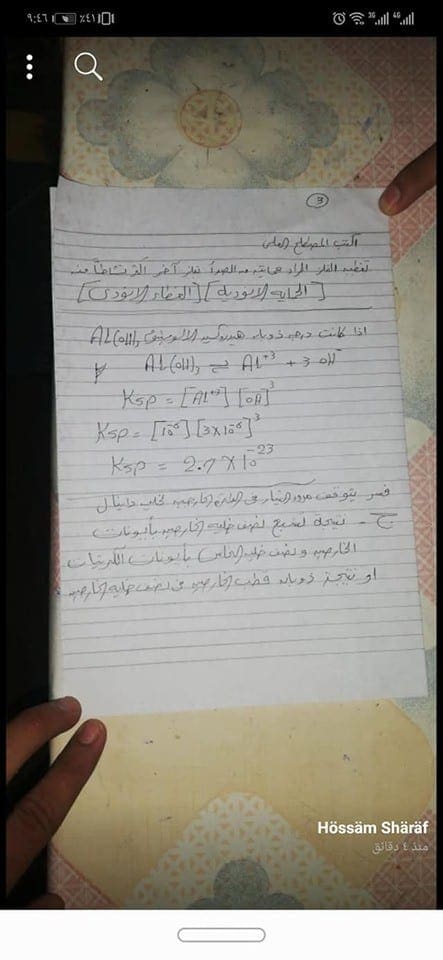 ٩:٤٦
٪٤١
3G
4G
٣
اكتب المصطلح العلمى
تغطيه الفلز المراد حمايته من الصدأ بفلز آخر أكثر نشاطاً منه
[الحمايه الانوديه] [الغطاء الانودى]
اذا كانت درجه ذوبان هيدروكسيد الالومنيوم Al(OH)₃
Al(OH)₃ ⇌ Al⁺³ + 3OH⁻
Ksp = [Al⁺³] [OH]³
Ksp = [10⁻⁶] [3×10⁻⁶]³
Ksp = 2.7 × 10⁻²³
فسر يتوقف مرور التيار فى الخارجيه لخليه دانيال
ج- نتيجة تشبع نصف خليه الخارصين بأيونات
الخارصين ونصف خليه النحاس بأيونات الكبريتات
او نتيجة ذوبان قطب الخارصين فى نصف خليه الخارصين
Hössäm Shäräf
منذ ٤ دقائق